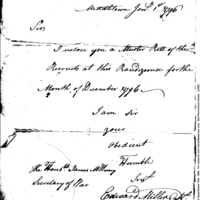 Middletown Jany 1st 1796
Sir
I inclose you a Muster Roll of the
Recruits at this Randzvous for the
Month of December 1796.
I am sir
your
obedient
Humble
Servt
Edward Miller
The Honble James McHenry
Secretary of War